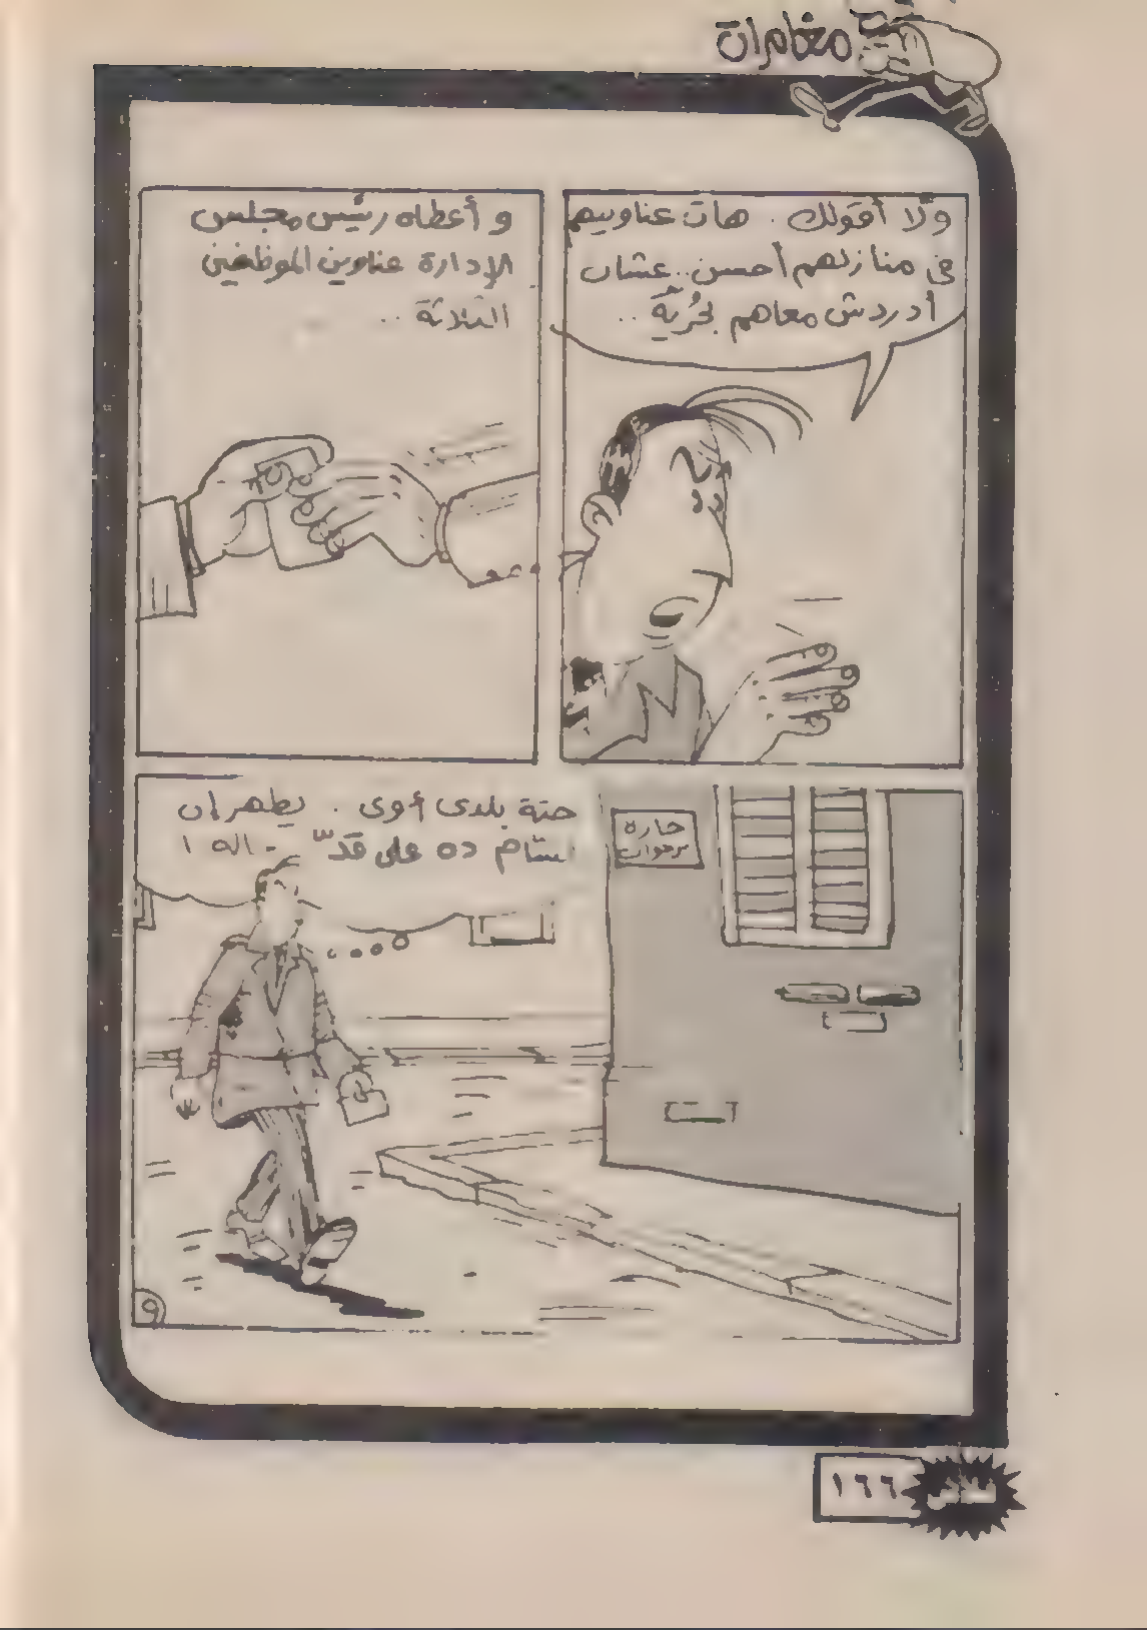 مغامرات
ولّا أقولك . هات عناوينهم
فى منازلهم أحسن .. عشان
أدردش معاهم بحُريّة ..
و أعطاه رئيس مجلس
الإدارة عناوين الموظفين
الثلاثة ..
حتة بلدى أوى . يظهر إن
بسّام ده على قدّ
حارة
برجوان
٩
١٦٦